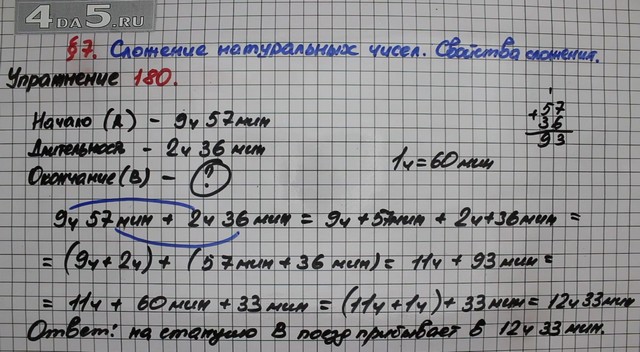 4DA5.RU
§7. Сложение натуральных чисел. Свойства сложения.
Упражнение 180.
Начало (А) - 9ч 57мин
Длительнося - 2ч 36 мин
Окончание (В) - ?
1ч = 60мин
+57
36
93
1
9ч 57 мин + 2ч 36 мин = 9ч + 57мин + 2ч + 36мин =
= (9ч + 2ч) + (57мин + 36 мин) = 11ч + 93мин =
= 11ч + 60 мин + 33 мин = (11ч + 1ч) + 33 мин = 12ч 33мин
Ответ: на станцию В поезд прибывает в 12ч 33мин.